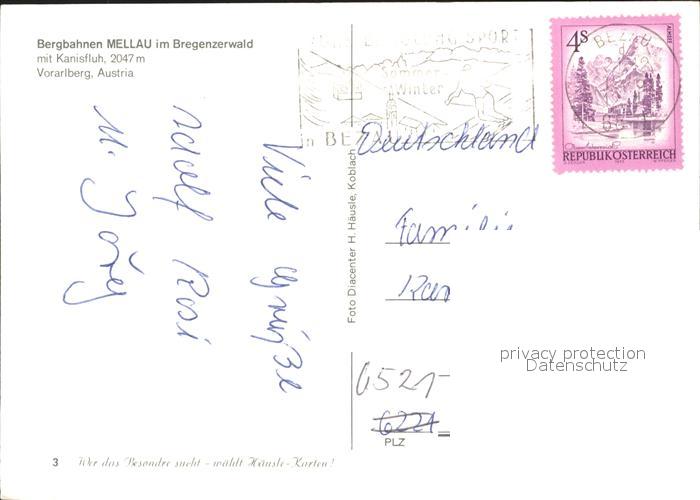 Bergbahnen MELLAU im Bregenzerwald
mit Kanisfluh, 2047 m
Vorarlberg, Austria
Viele Grüße
Adolf Rosi
u. Jörg
Foto Diacenter H. Häusle, Koblach
SPORT
Sommer
Winter
in BEZ
BEZAU
4S
ALMSEE
REPUBLIK ÖSTERREICH
Deutschland
Familie
privacy protection
Datenschutz
6521
6221
PLZ
3 Wer das Besondre sucht - wählt Häusle-Karten!